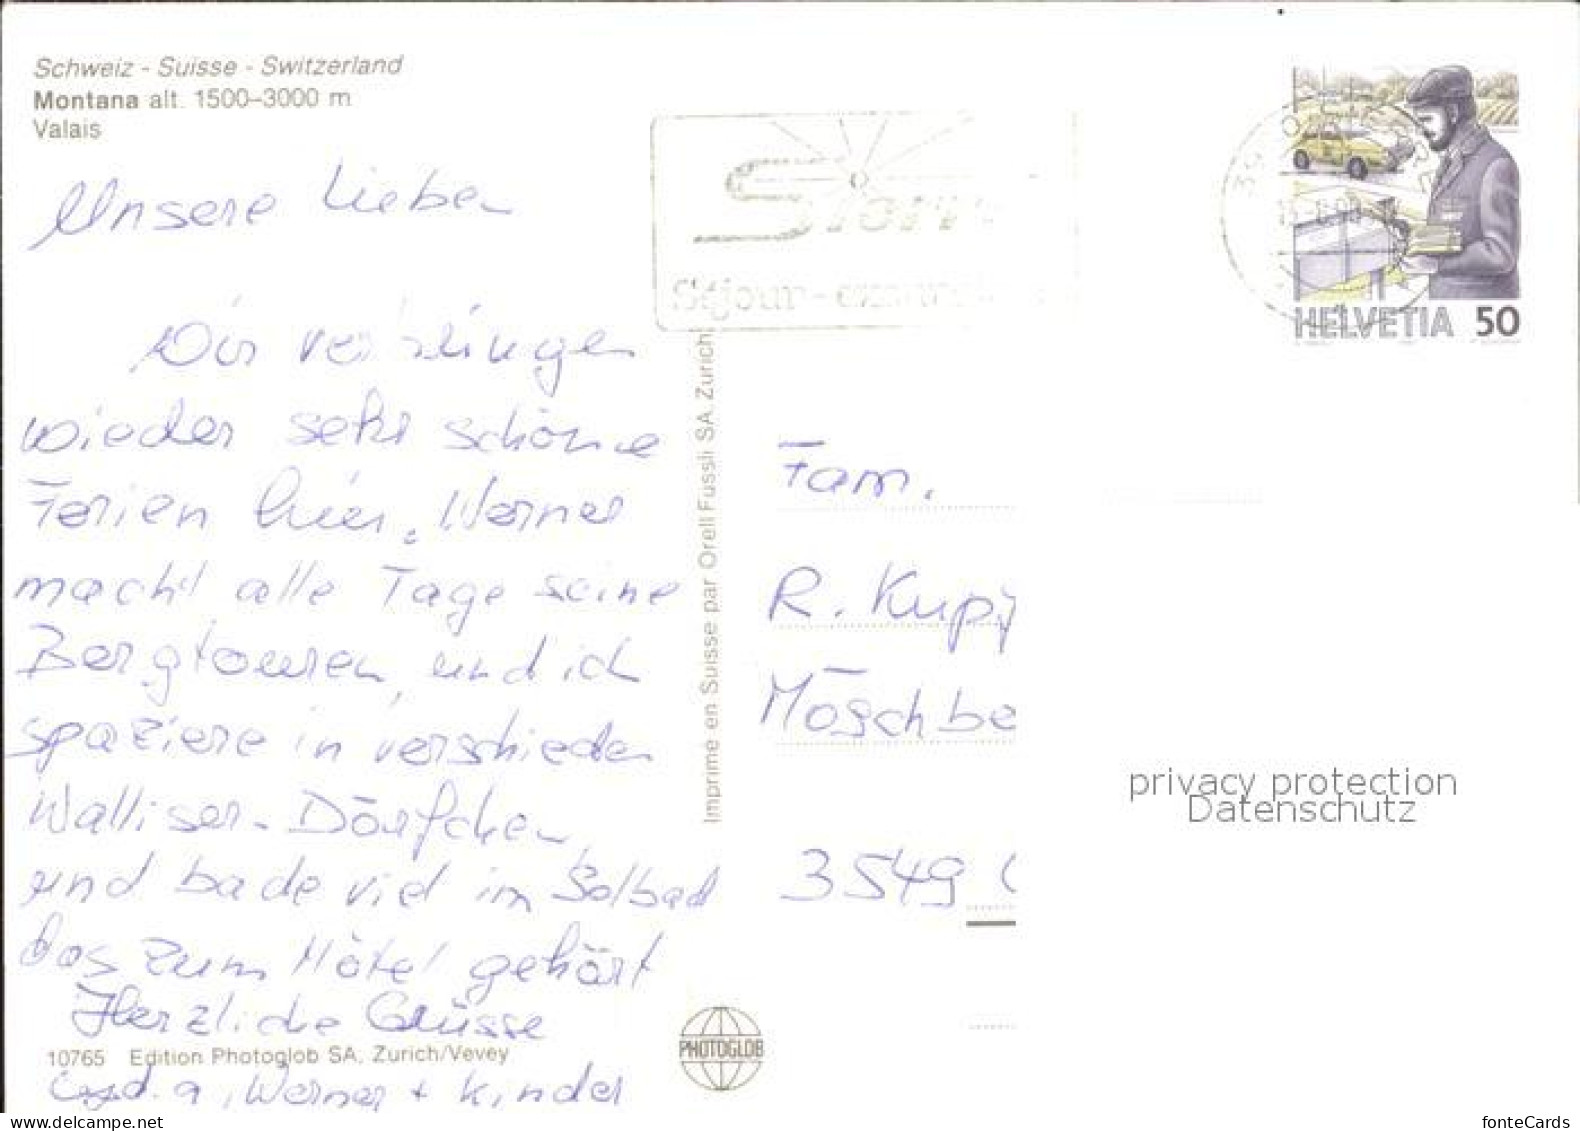 Schweiz - Suisse - Switzerland
Montana alt. 1500–3000 m
Valais
Unsere Lieben
Wir verbringen
wieder sehr schöne
Ferien hier. Werner
macht alle Tage seine
Bergtouren, und ich
spaziere in verschieden
Walliser-Dörfchen,
und bade viel im Solbad
das zum Hotel gehört
Herzliche Grüsse
10765 Edition Photoglob SA, Zurich/Vevey
Werner + Kinder
Imprimé en Suisse par Orell Füssli SA, Zurich
PHOTOGLOB
Sion
Séjour-
HELVETIA 50
Fam.
R. Kupf
Möschbe
3549
privacy protection
Datenschutz
delcampe.net
fonteCards